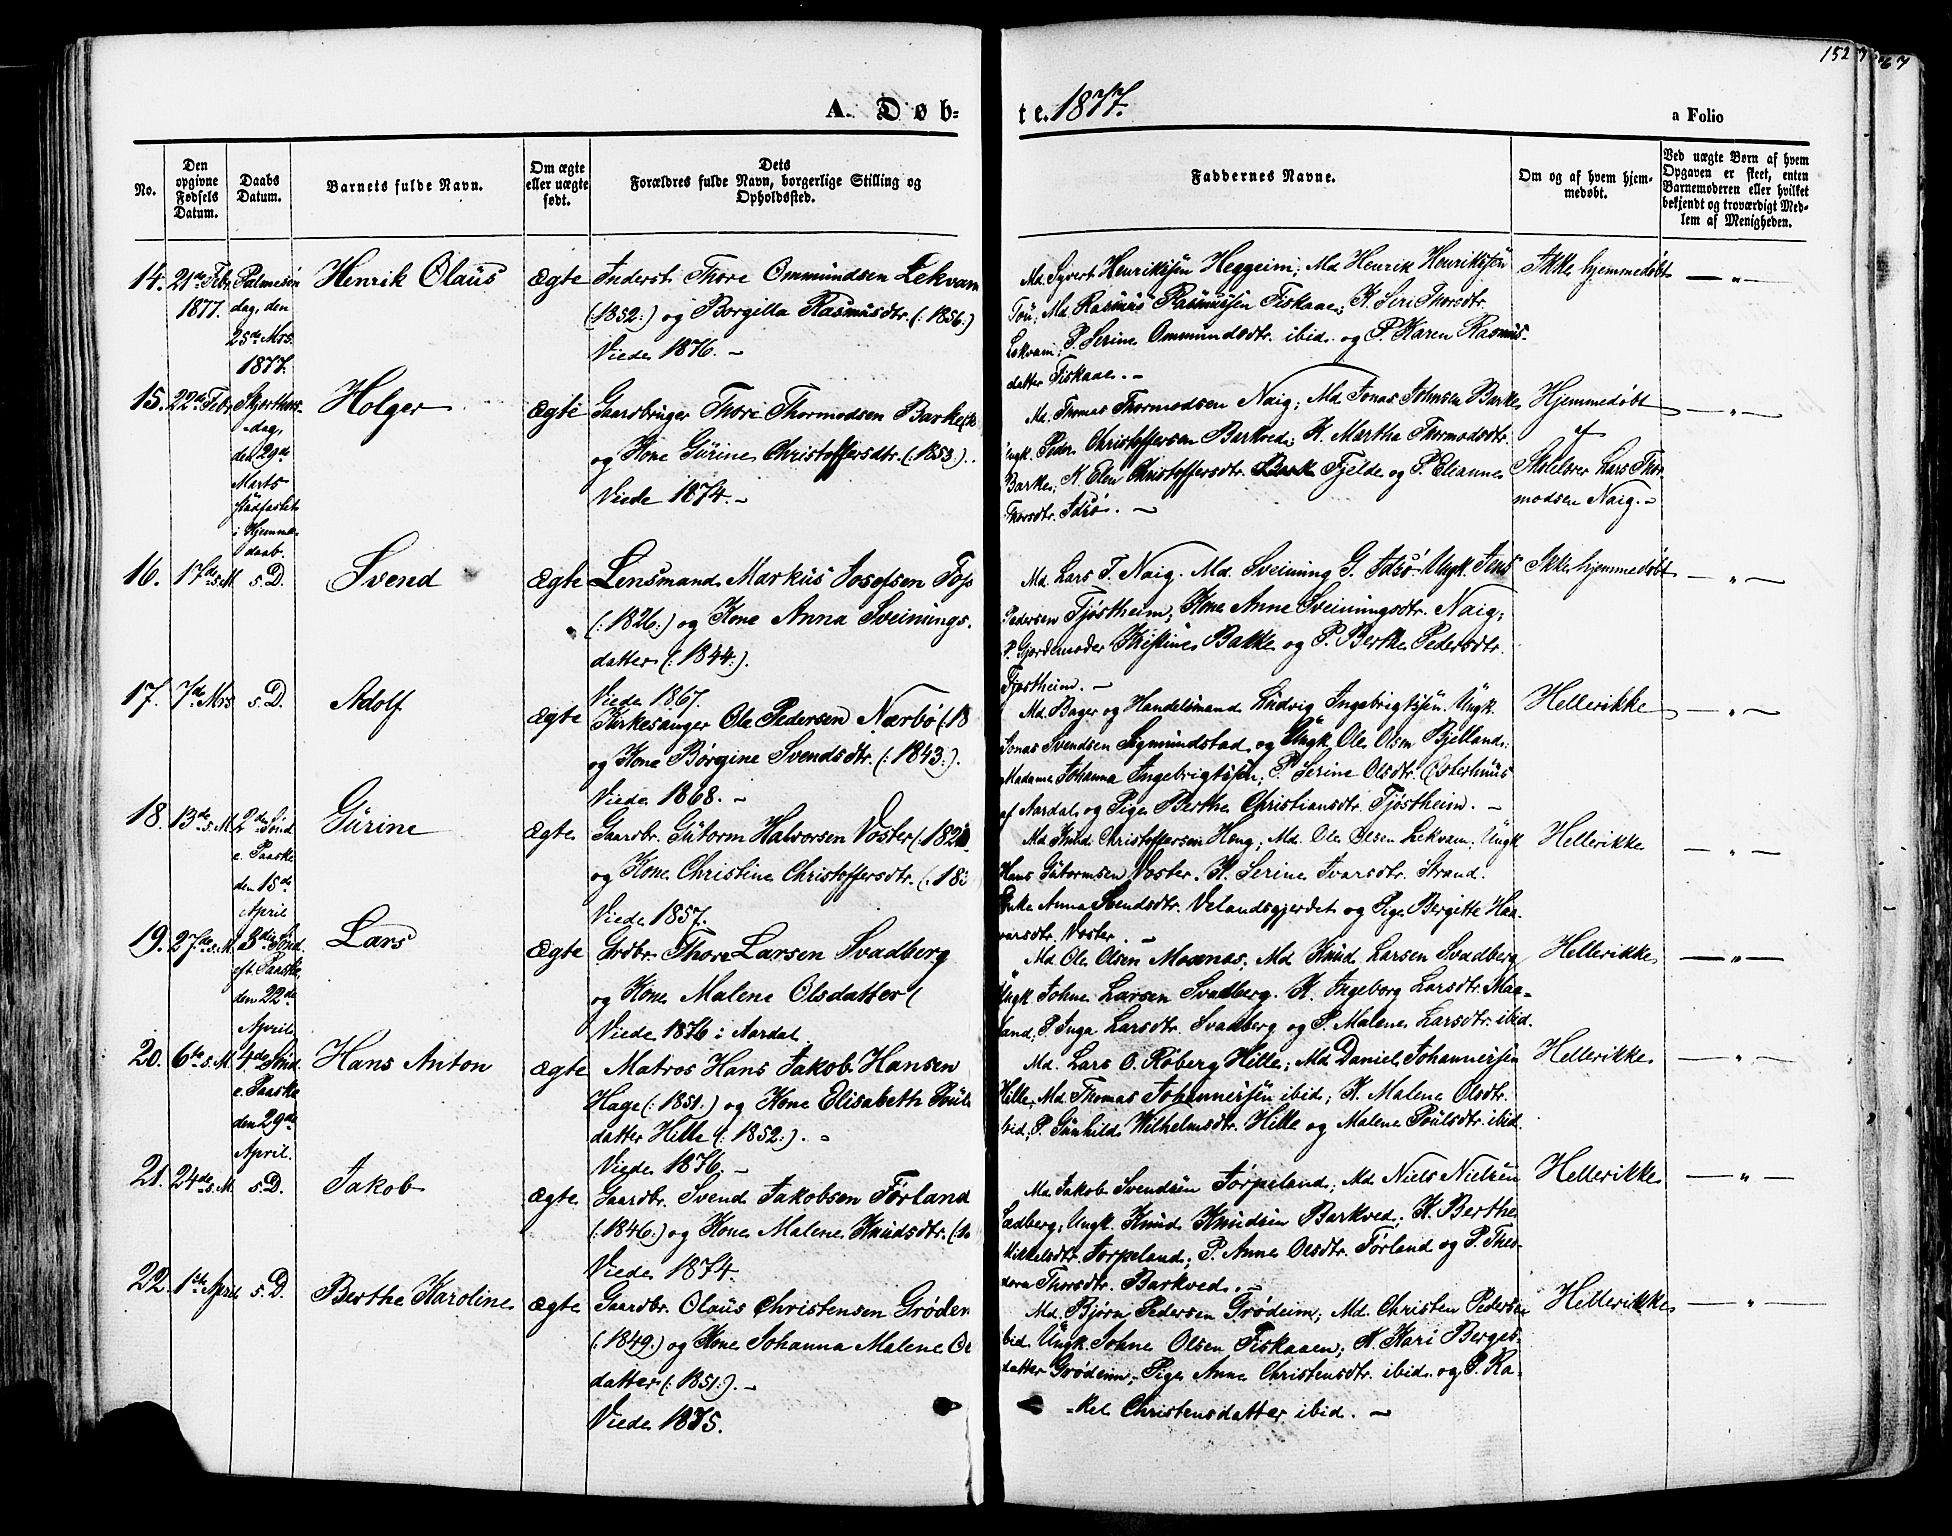 152
67
A. Døb-
te. 1877.
a Folio
No.
Den opgivne Fødsels Datum.
Daabs Datum.
Barnets fulde Navn.
Om ægte eller uægte født.
Dets Forældres fulde Navn, borgerlige Stilling og Opholdssted.
Faddernes Navne.
Om og af hvem hjemmedøbt.
Ved uægte Børn af hvem Opgaven er skeet, enten Barnemoderen eller hvilket bekjendt og troværdigt Medlem af Menigheden.
14.
21de Febr
1877.
Palmesøn
dag, den
25de Mrs.
1877.
Henrik Olaus
Ægte
Inderst. Thore Ommundsen Lekvam
(1852:) og Borgilla Rasmusdtr. (:1856:)
Viede 1876. -
Md. Syvert Henriksen Heggeim; Md Henrik Henriksen
Tou; Md Rasmus Rasmussen Fiskaae; K. Seri Thorsdtr.
Lekvam; P. Serine Ommundsdtr. ibid. og P. Karen Rasmus-
datter Fiskaae. -
Ikke hjemmedøbt
— „ —
15.
22de Febr
Skjærthors-
dag,
den 29de
Marts
stadfæstet
i Hjemme-
daab.
Holger
Ægte
Gaardbruger Thore Thormodsen Barke
og Kone Gurine Christoffersdtr. (:1853:).
Viede 1874. -
Md. Thomas Thormodsen Naig; Md Jonas Johnsen Barke
Ungk. Peder Christoffersen Barkved; K. Martha Thormodsdtr.
Barke; K. Elen Christoffersdtr. Fjelde og P. Elianne
Thorsdtr. Idsø. -
Hjemmedøbt
af
Skolelær Lars Thor-
modsen Naig. -
— „ —
16.
17de s. M.
s. D.
Svend
Ægte
Lensmand Markus Josefsen
(:1826:) og Kone Anna Sveinings-
datter (:1844:).
Viede 1867.
Md. Lars T. Naig. Md. Sveinung G. Idsø Ungk. Jens
Pedersen Tjøstheim; Kone Anne Sveiningsdtr. Naig;
P. Gjordemoder Kristine Bakke og P. Berthe Pedersdtr.
Tjøstheim. -
Ikke hjemmedøbt
— „ —
17.
7de Mrs
s. D.
Adolf
Ægte
Kirkesanger Ole Pedersen Nærbø (:18
og Kone Børgine Svendsdtr. (:1843:).
Viede 1868. -
Md. Bager og Handelsmand Ludvig Ingebrigtsen. Ungk.
Jonas Svendsen Sigmundstad og Ungk Ole Olsen Bjelland;
Madame Johanna Ingebrigtsen; P. Serine Olsdtr. Østerhuus
af Aardal og Pige Berthe Christiansdtr. Tjøstheim. -
Hellerikke
— „ —
18.
13de s. M.
2de Sønd
e. Paaske
den 15de
April
Gurine
Ægte
Gaardbr. Gutorm Halvorsen Voster (:182
og Kone Christine Christoffersdtr. (:183
Viede 1857.
Md. Knud Christoffersen Høng; Md. Ole Olsen Lekvam; Ungk
Hans Gutormsen Voster. K. Serine Ivarsdtr. Strand.
Enke Anna Svendsdtr. Velandsgjerdet og Pige Bergitte Haa-
varsdtr. Voster. -
Hellerikke
— „ —
19.
27de s. M.
3die Sønd.
eft. Paaske
den 22de
April
Lars
Ægte
Grdbr. Thore Larsen Svadberg
og Kone Malene Olsdatter (
Viede 1876 i Aardal
Md Ole Olsen Mosnæs; Md Knud Larsen Svadberg
Ungk Johne Larsen Svadberg. K. Ingeborg Larsdtr. Maa-
land; P. Inga Larsdtr. Svadberg og P. Malene Larsdtr. ibid.
Hellerikke
— „ —
20.
6te s. M.
4de Sønd.
e. Paaske
den 29de
April.
Hans Anton
Ægte
Matros Hans Jakob Hansen
Hage (:1851:) og Kone Elisabeth Pouls
datter Hille (:1852:). -
Viede 1876. -
Md. Lars O. Røberg Hille; Md Daniel Johannessen
Hille, Md. Thomas Johannessen ibid; K. Malene Olsdtr.
ibid; P. Gunhild Wilhelmsdtr. Hille og Malene Poulsdtr. ibid.
Hellerikke
— „ —
21.
24de s. M.
s. D.
Jakob
Ægte
Gaardbr. Svend Jakobsen Førland
(:1846:) og Kone Malene Knudsdtr.
Viede 1874.
Md. Jakob Svendsen Jørpeland; Md Niels Nielsen
Ladberg; Ungk. Knud Knudsen Barkved. K. Berthe
Mikkelsdtr. Jørpeland; P. Anne Olsdtr. Førland og P. Theo-
dora Thorsdtr. Barkved. -
Hellerikke
— „ —
22.
1ste April
s. D.
Berthe Karoline
Ægte
Gaardbr. Olaus Christensen Grødem
(:1849:) og Kone Johanna Malene
datter (:1851:). -
Viede 1875.
Md. Bjørn Pedersen Grødeim; Md. Christen Pedersen
ibid. Ungk. Johne Olsen Fiskaaen; K. Kari Berges-
datter Grødeim; Pige Anne Christensdtr. ibid. og P. Ra-
-kel Christensdatter ibid. -
Hellerikke
— „ —